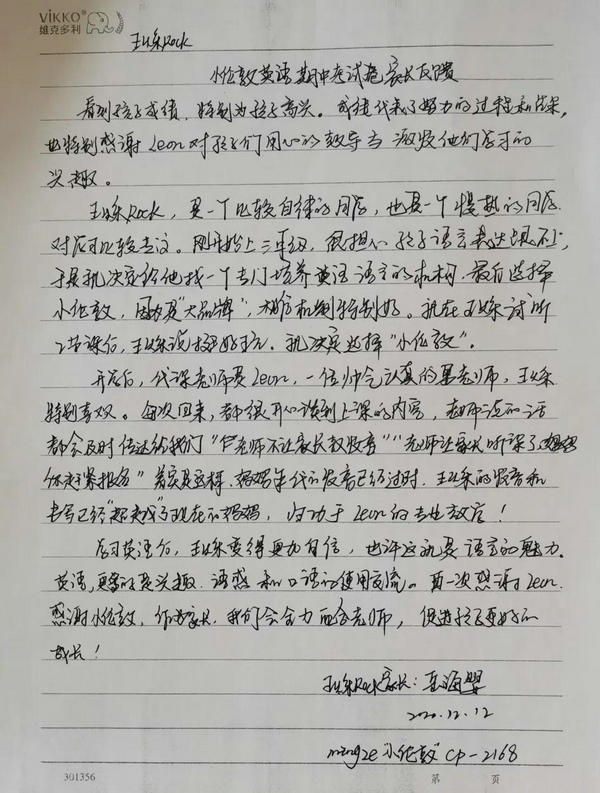 VIKKO
维克多利
王烁Rock
小伦敦英语期中考试卷家长反馈
看到孩子成绩,特别为孩子高兴。成绩代表了努力的过程和结果,
也特别感谢Leon对孩子们用心的教导与激发他们学习的
兴趣。
Rock,是一个比较自律的同学,也是一个慢热的同学
对应比较。刚开始上三年级,很担心孩子语言表达跟不上,
于是就决定给他找一个专门培养英语语言的机构,最后选择
小伦敦,因为是“大品牌”,机制特别好。就在试听
节课后,说挺好玩。就决定选择“小伦敦”。
开启后,代课老师是Leon,一位帅气认真的男老师,
特别喜欢。每次回来,都很开心谈到上课的内容,老师说的话
都会及时传达给我们“老师不让家长教发音”“老师让家长听课了妈妈
你赶紧报名”着实是这样,妈妈年代的发音已经过时,的发音和
已经“超越”了现在的妈妈,归功于Leon的专业教育!
学习英语后,变得更加自信,也许这就是语言的魅力。
英语,更多的是兴趣、语感和口语的使用交流。再一次感谢Leon.
感谢小伦敦,作为家长,我们会全力配合老师,促进孩子更好的
成长!
Rock家长:海
2020.12.12
“小伦敦” CP-2168
301356
第 页